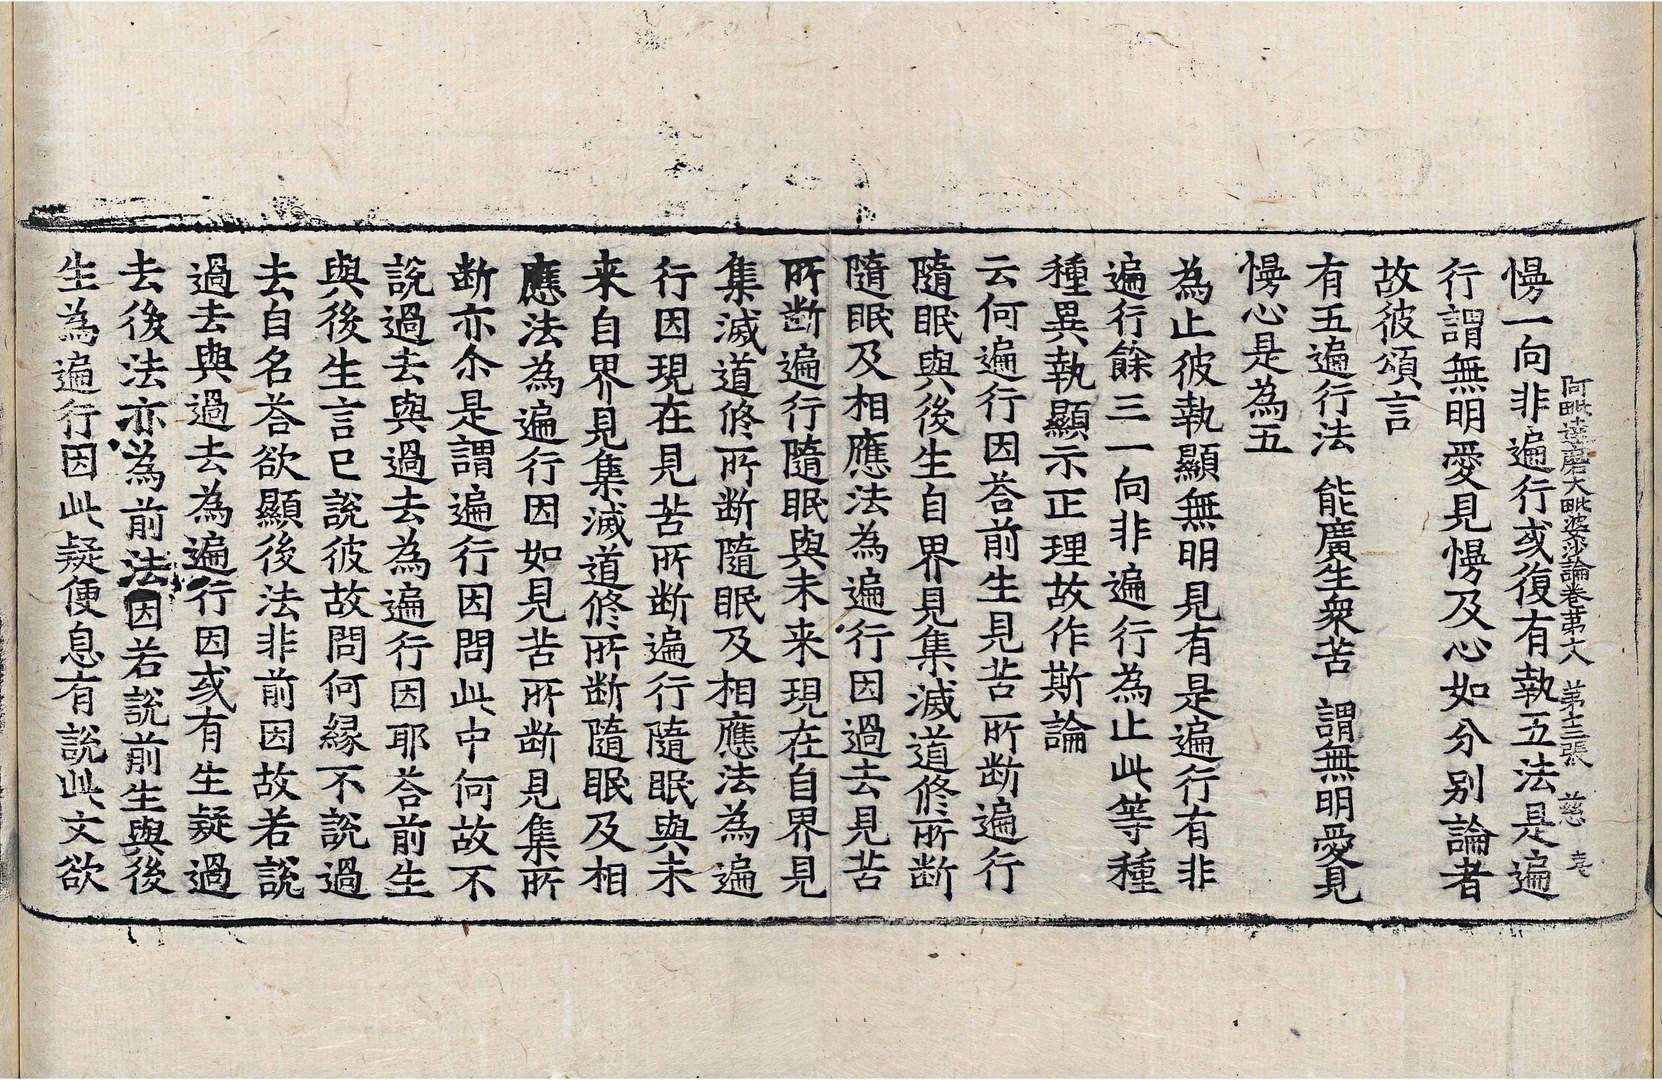 阿毗達磨大毗婆沙論卷第十八　第十三張　慈
慢一向非遍行或復有執五法是遍
行謂無明愛見慢及心如分別論者
故彼頌言
有五遍行法　能廣生衆苦　謂無明愛見
慢心是為五
為止彼執顯無明見有是遍行有非
遍行餘三一向非遍行為止此等種
種異執顯示正理故作斯論
云何遍行因荅前生見苦所断遍行
隨眠與後生自界見集滅道修所断
隨眠及相應法為遍行因過去見苦
所断遍行隨眠與未来現在自界見
集滅道修所断隨眠及相應法為遍
行因現在見苦所断遍行隨眠與未
来自界見集滅道修所断隨眠及相
應法為遍行因如見苦所断見集所
断亦尒是謂遍行因問此中何故不
說過去與過去為遍行因耶荅前生
與後生言已說彼故問何縁不說過
去自名荅欲顯後法非前因故若說
過去與過去為遍行因或有生疑過
去後法亦為前法因若說前生與後
生為遍行因此疑便息有說此文欲